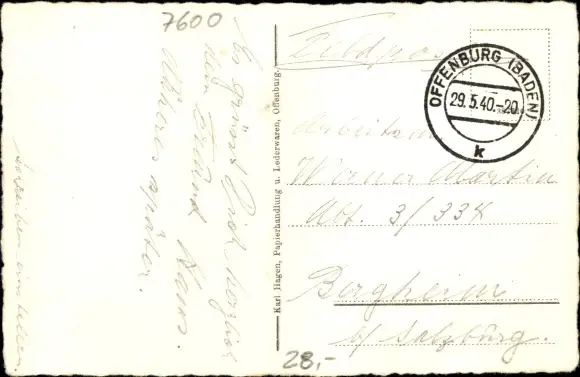 7600
Es grüsst Dich herzlich
dein Freund Hans.
Näheres später.
Schreiben
Karl Hagen, Papierhandlung u. Lederwaren, Offenburg.
Feldpost
OFFENBURG (BADEN)
29.5.40.-20
k
Werner Martin
Abt. 3/334
Bergheim
b/ Salzburg.
28,-